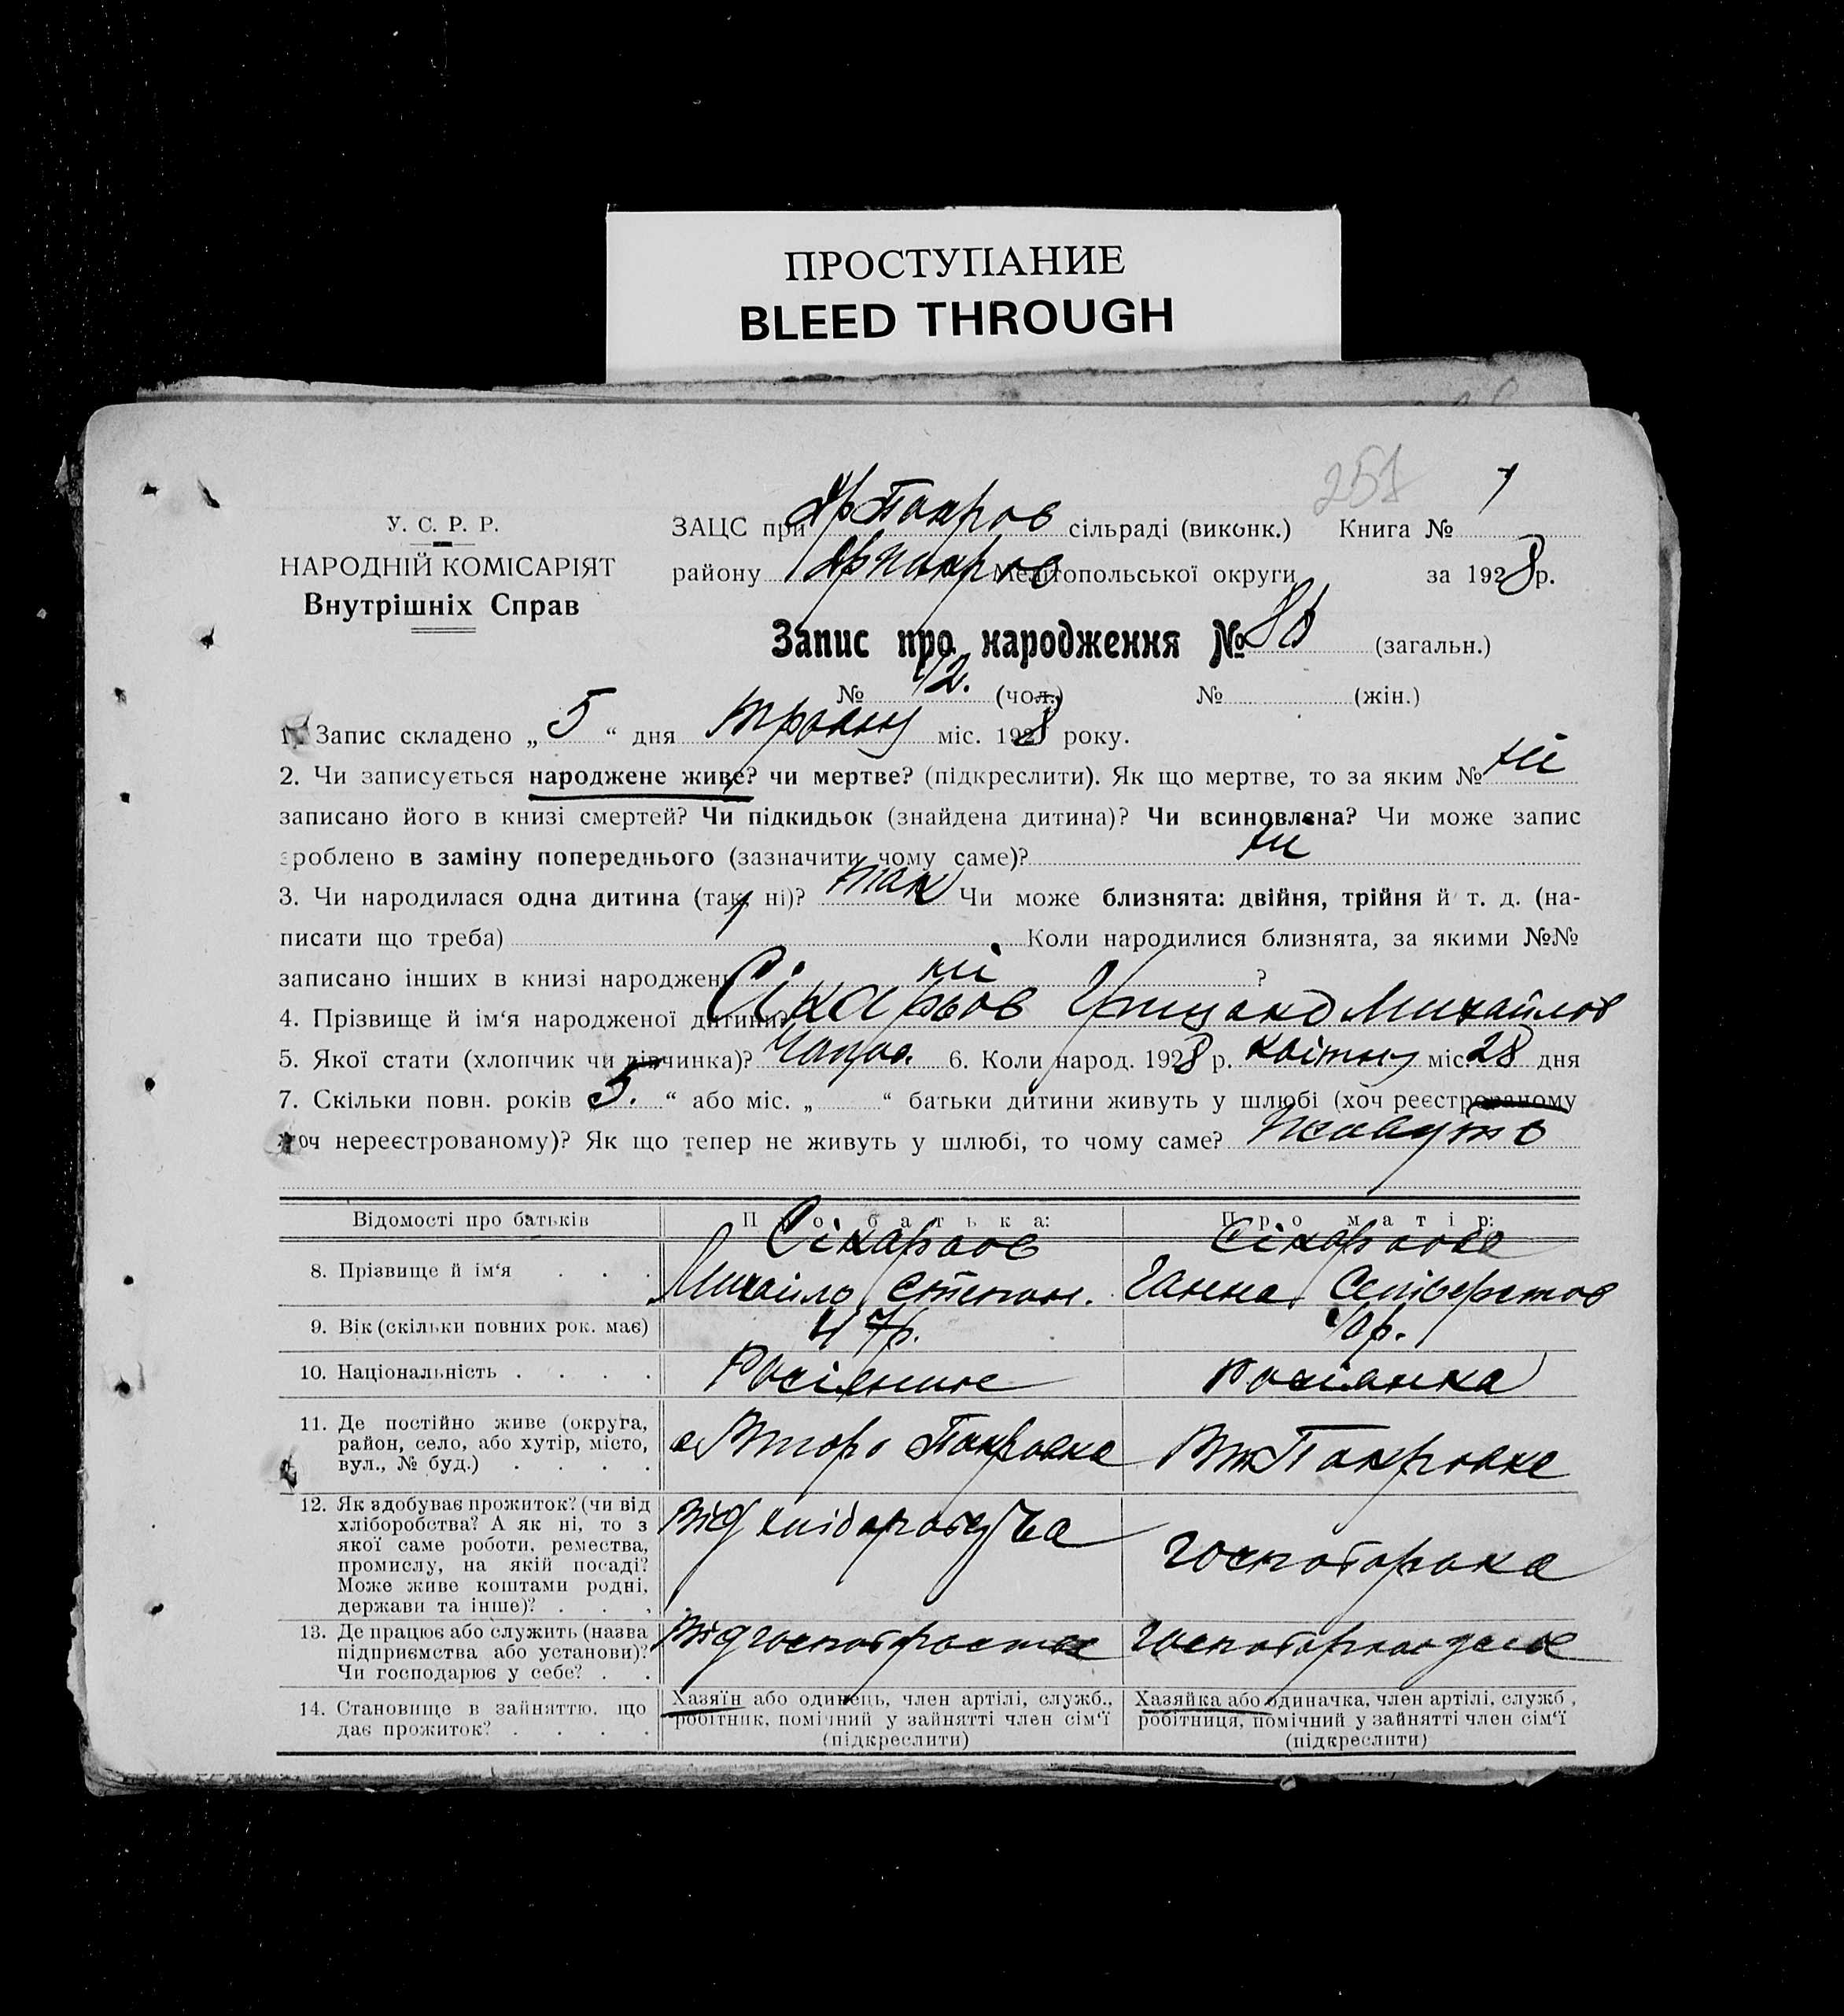 ПРОСТУПАНИЕ
BLEED THROUGH
251
У. С. Р. Р.
НАРОДНІЙ КОМІСАРІЯТ
Внутрішніх Справ
ЗАЦС при сільраді (виконк.) Книга № 1
району Мелітопольської округи за 1928 р.
Запис про народження № (загальн.)
№ (чол.) № (жін.)
1. Запис складено „ 5 “ дня міс. 1928 року.
2. Чи записується народжене живе? чи мертве? (підкреслити). Як що мертве, то за яким № ні
записано його в книзі смертей? Чи підкидьок (знайдена дитина)? Чи всиновлена? Чи може запис
зроблено в заміну попереднього (зазначити чому саме)? ні
3. Чи народилася одна дитина (так, ні)? так Чи може близнята: двійня, трійня й т. д. (на-
писати що треба) Коли народилися близнята, за якими №№
записано інших в книзі народжень ні ?
4. Прізвище й ім‘я народженої дитини? Сікарьов Михайлов
5. Якої стати (хлопчик чи дівчинка)? 6. Коли народ. 1928 р. квітня міс. 28 дня
7. Скільки повн. років „ 5. “ або міс. „ “ батьки дитини живуть у шлюбі (хоч реєстрованому
хоч нереєстрованому)? Як що тепер не живуть у шлюбі, то чому саме? Живуть
Відомості про батьків Про батька: Про матір:
8. Прізвище й ім‘я . . . Михайло Степан. Ганна
9. Вік (скільки повних рок. має) 47р.
10. Національність . . . . Росіянин Росіянка
11. Де постійно живе (округа,
район, село, або хутір, місто,
вул., № буд.) . . . .
с Второ Покровка Вт Покровка
12. Як здобуває прожиток? (чи від
хліборобства? А як ні, то з
якої саме роботи, ремества,
промислу, на якій посаді?
Може живе коштами родні,
держави та інше)? . . .
Від
13. Де працює або служить (назва
підприємства або установи)?
Чи господарює у себе? . .
14. Становище в зайняттю, що
дає прожиток? . . . .
Хазяїн або одинець, член артілі, служб.,
робітник, помічний у зайнятті член сім‘ї
(підкреслити)
Хазяйка або одиначка, член артілі, служб.,
робітниця, помічний у зайнятті член сім‘ї
(підкреслити)